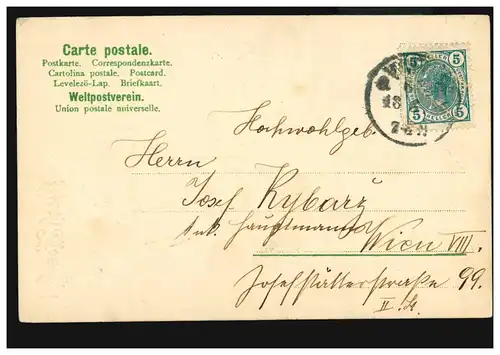 Carte postale.
Postkarte. Correspondenzkarte.
Cartolina postale. Postcard.
Levelező-Lap. Briefkaart.
Weltpostverein.
Union postale universelle.
5 5
HELLER
Hochwohlgeb
Herrn
Josef Rybarz
k.u.k. Hauptmann
Wien VIII.
Josefstätterstraße 99.
II. St.